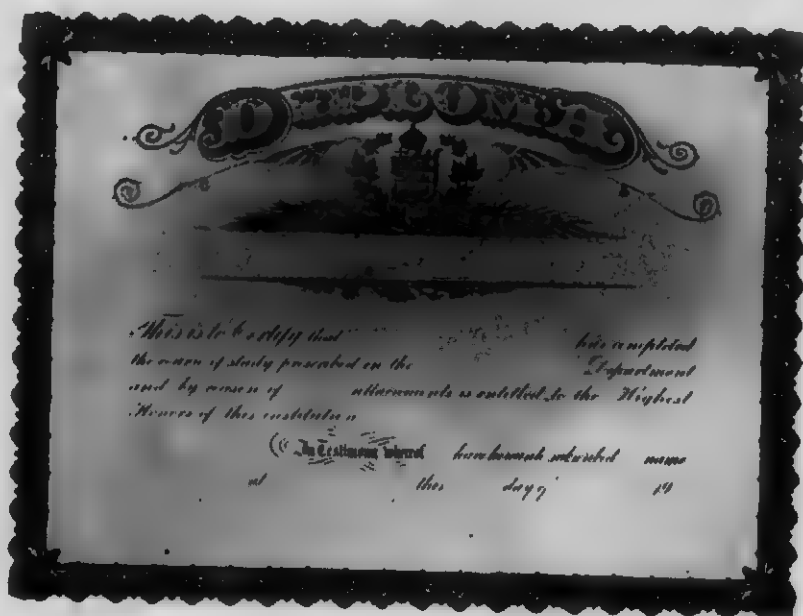 DIPLOMA
This is to Certify that has completed
the course of study prescribed in the Department
and by reason of attainments is entitled to the Highest
Honors of this institution
In Testimony whereof hereunto subscribed name
at this day of 19